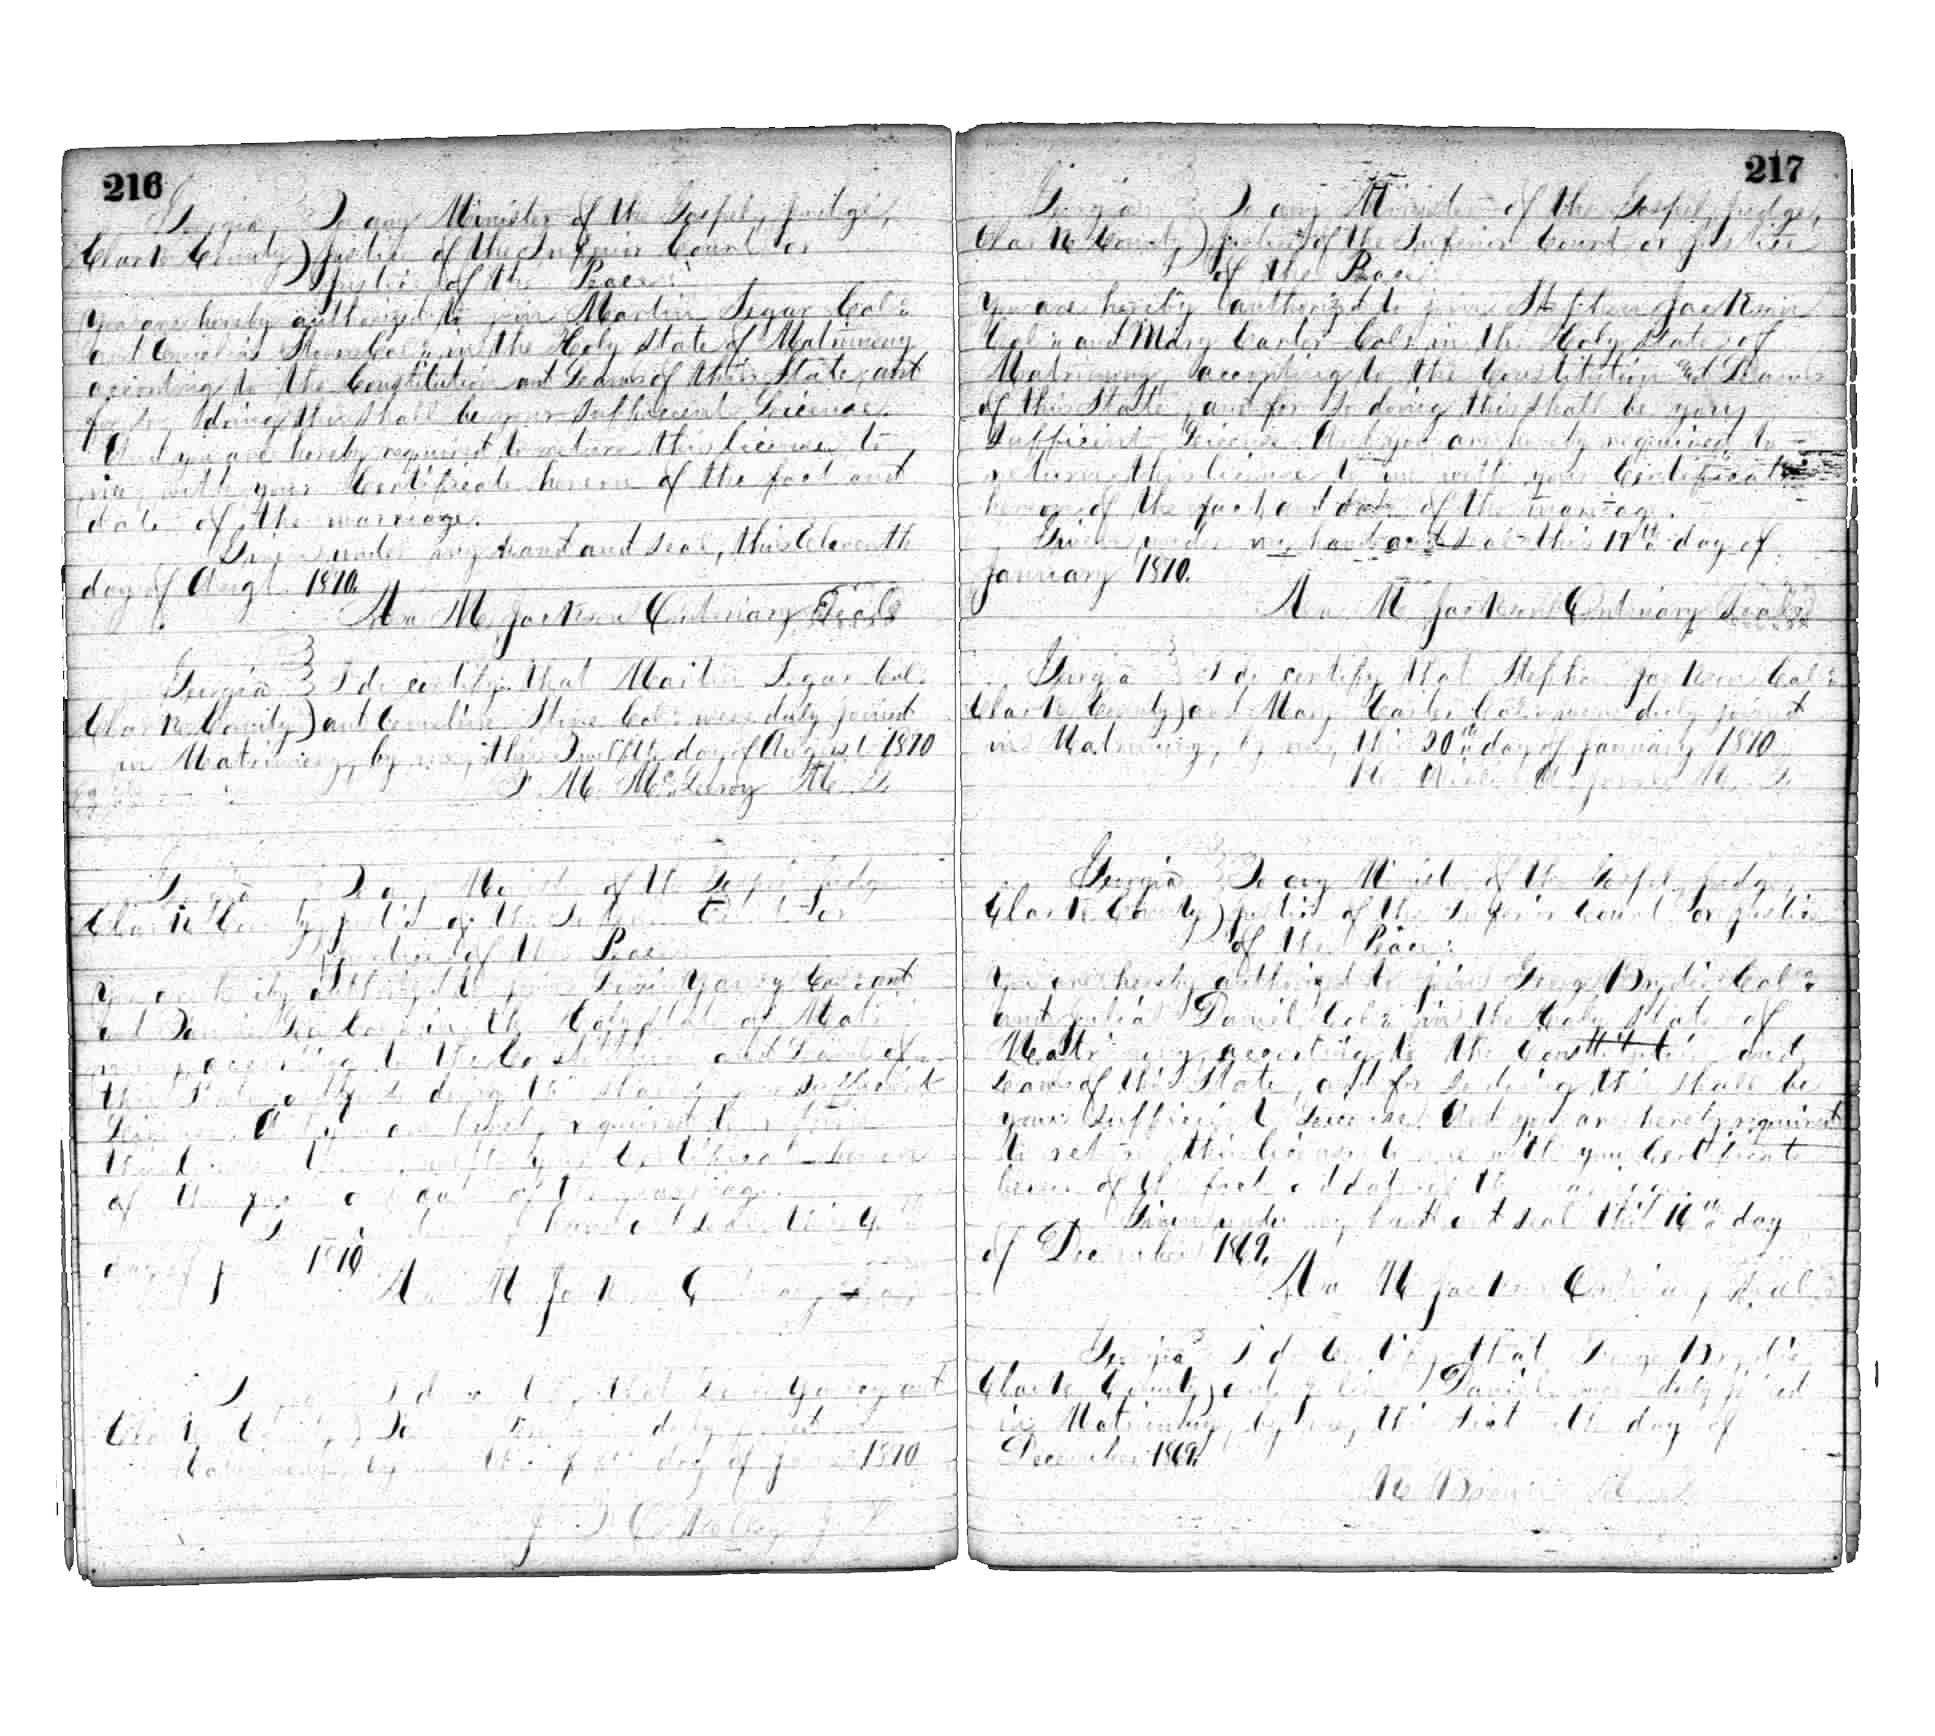 216
Georgia, To any Minister of the Gospel, Judge,
Clark County) Justice of the Inferior Court or
Justice of the Peace:
You are hereby authorized to join Martin Cold
and Stone Cold in the Holy State of Matrimony
according to the Constitution and Laws of this State, and
for so doing this shall be your sufficient License.
And you are hereby required to return this license to
me, with your Certificate hereon of the fact and
date of the marriage.
Given under my hand and seal, this Eleventh
day of Augt 1870.
Asa M. Jackson Ordinary Seal
Georgia I do certify that Martin Col.
Clark County) and Stone Cold were duly joined
in Matrimony, by me, this Twelfth day of August 1870
F. M. McLeroy M. G.
Georgia To any Minister of the Gospel Judge
Clark County Justice of the Inferior Court or
Justice of the Peace
You are hereby authorized to join Yancy Cold and
and in the Holy State of Matri
mony according to the Constitution and Laws of
this State and for so doing this shall be your sufficient
License. And you are hereby required to return
this license to me with your Certificate hereon
of the fact and date of the marriage.
Given under my hand and seal this
day of 1870
Asa M. Jackson Ordinary Seal
Georgia I do certify that Yancy and
Clark County) duly joined in
Matrimony, by me this day of 1870
217
Georgia To any Minister of the Gospel, Judge,
Clark County) Justice of the Inferior Court or Justice
of the Peace
You are hereby authorized to join Stephen Jackson
Cold and Mary Carter Cold in the Holy State of
Matrimony, according to the Constitution and Laws
of this State, and for so doing this shall be your
sufficient License. And you are hereby required to
return this license to me with your Certificate
hereon of the fact and date of the marriage.
Given under my hand and seal this 19th day of
January 1870.
Asa M. Jackson Ordinary Seal
Georgia I do certify that Stephen Jackson Cold
Clark County) and Mary Carter Cold were duly joined
in Matrimony, by me, this 20th day of January 1870
M. G.
Georgia To any Minister of the Gospel, Judge,
Clark County) Justice of the Inferior Court or Justice
of the Peace:
You are hereby authorized to join George Cold
and Julia Daniel Cold in the Holy State of
Matrimony, according to the Constitution and
Laws of this State, and for so doing this shall be
your sufficient License. And you are hereby required
to return this license to me with your Certificate
hereon of the fact and date of the marriage.
Given under my hand and seal this 16th day
of December 1869.
Asa M. Jackson Ordinary Seal
Georgia I do Certify that George
Clark County) and Julia Daniel were duly joined
in Matrimony, by me, this day of
December 1869.